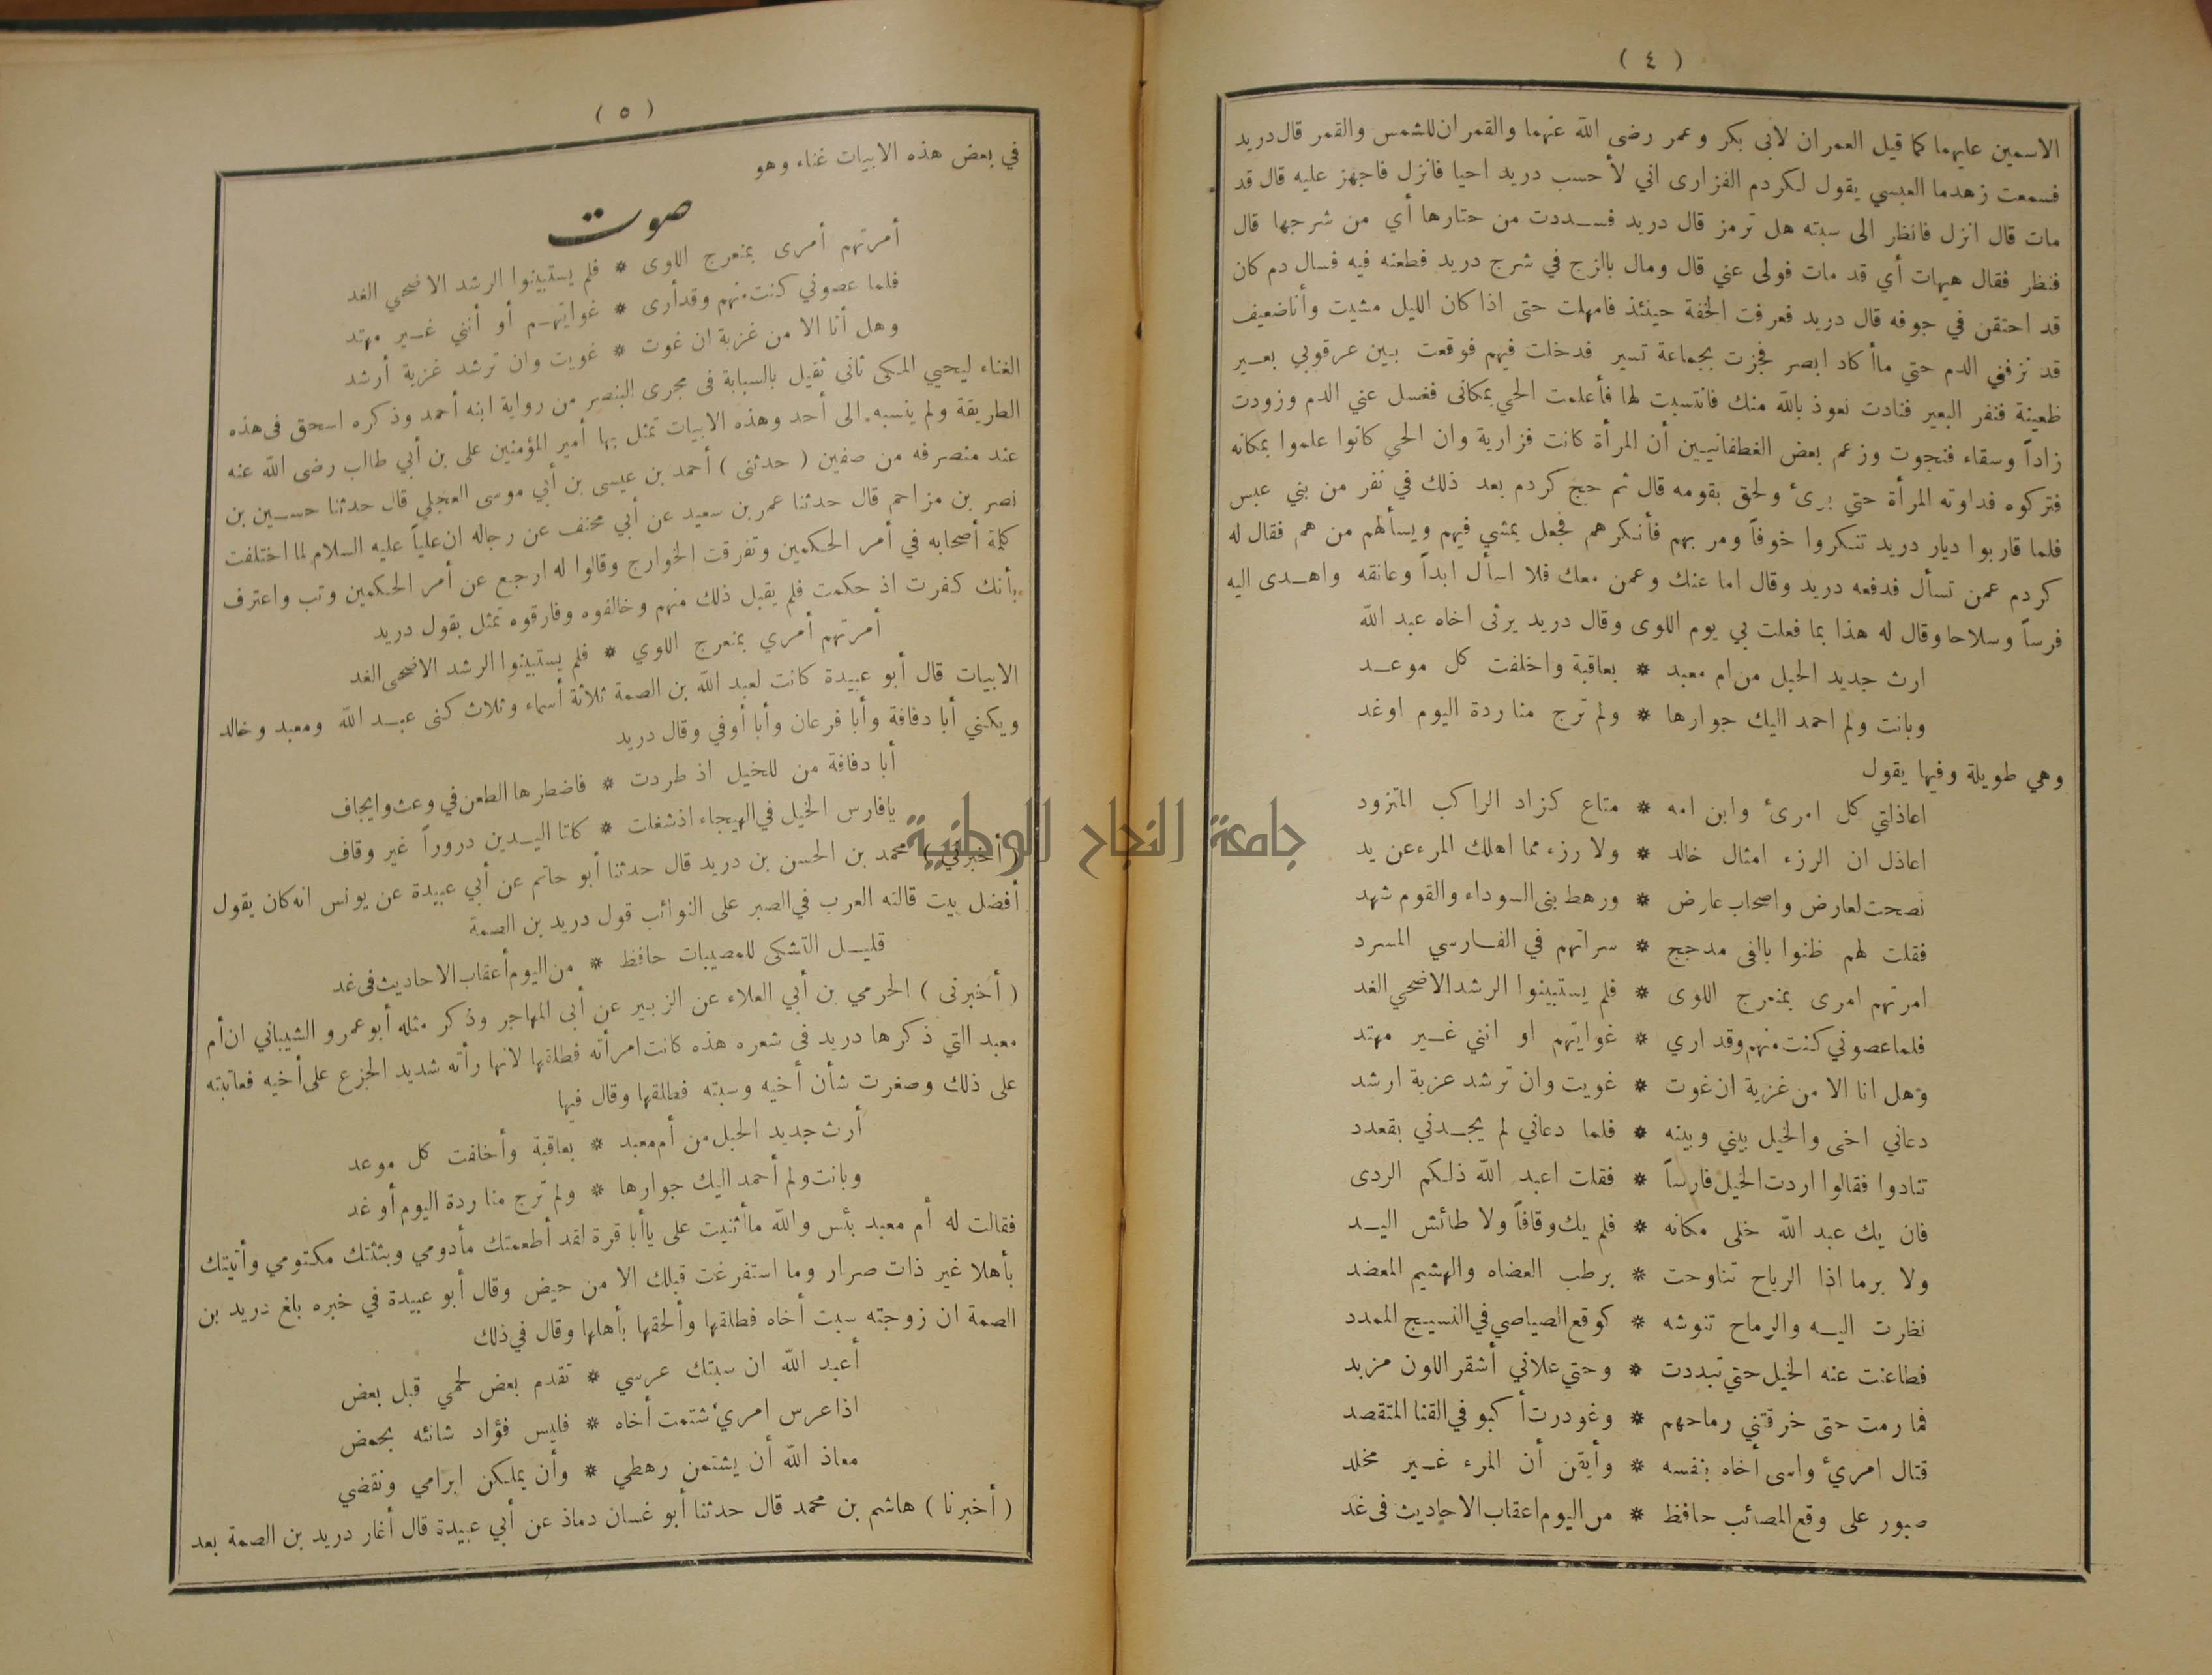 ( ٤ )
الاسمين عليهما كما قيل العمران لابى بكر وعمر رضى الله عنهما والقمران للشمس والقمر قال دريد
فسمعت زهدما العبسي يقول لكردم الفزارى اني لأحسب دريد احيا فانزل فاجهز عليه قال قد
مات قال انزل فانظر الى سبته هل ترمز قال دريد فسددت من حتارها أي من شرجها قال
فنظر فقال هيهات أي قد مات فولى عني قال ومال بالزج في شرج دريد فطعنه فيه فسال دم كان
قد احتقن في جوفه قال دريد فعرفت الخفة حينئذ فامهلت حتى اذا كان الليل مشيت وأنا ضعيف
قد نزفني الدم حتي ماأكاد ابصر فجزت بجماعة تسير فدخلت فيهم فوقعت بين عرقوبي بعير
ظعينة فنفر البعير فنادت نعوذ بالله منك فانتسبت لها فأعلمت الحي بمكانى فغسل عني الدم وزودت
زاداً وسقاء فنجوت وزعم بعض الغطفانيين أن المرأة كانت فزارية وان الحي كانوا علموا بمكانه
فتركوه فداوته المرأة حتي برئ ولحق بقومه قال ثم حج كردم بعد ذلك في نفر من بني عبس
فلما قاربوا ديار دريد تنكروا خوفاً ومر بهم فأنكرهم فجعل يمشي فيهم ويسألهم من هم فقال له
كردم عمن تسأل فدفعه دريد وقال اما عنك وعمن معك فلا اسأل ابداً وعانقه واهدى اليه
فرساً وسلاحا وقال له هذا بما فعلت بي يوم اللوى وقال دريد يرثى اخاه عبد الله
ارث جديد الحبل من ام معبد * بعاقبة واخلفت كل موعد
وبانت ولم احمد اليك جوارها * ولم ترج منا ردة اليوم اوغد
وهي طويلة وفيها يقول
اعاذلتي كل امرئ وابن امه * متاع كزاد الراكب المتزود
اعاذل ان الرزء امثال خالد * ولا رزء مما اهلك المرء عن يد
نصحت لعارض واصحاب عارض * ورهط بنى السوداء والقوم شهد
فقلت لهم ظنوا بالفى مدجج * سراتهم في الفارسي المسرد
امرتهم امرى بمنعرج اللوى * فلم يستبينوا الرشد الا ضحي الغد
فلما عصوني كنت منهم وقد اري * غوايتهم او انني غير مهتد
وهل انا الا من غزية ان غوت * غويت وان ترشد عزية ارشد
دعاني اخى والخيل بيني وبينه * فلما دعاني لم يجدني بقعدد
تنادوا فقالوا اردت الخيل فارساً * فقلت اعبد الله ذلكم الردى
فان يك عبد الله خلى مكانه * فلم يك وقافاً ولا طائش اليد
ولا برما اذا الرياح تناوحت * برطب العضاه والهشيم المعضد
نظرت اليه والرماح تنوشه * كوقع الصياصي في النسيج الممدد
فطاعنت عنه الخيل حتي تبددت * وحتي علاني أشقر اللون مزبد
فما رمت حتى خرقتني رماحهم * وغودرت أكبو في القنا المتقصد
قتال امريء واسى أخاه بنفسه * وأيقن أن المرء غير مخلد
صبور على وقع المصائب حافظ * من اليوم اعقاب الاحاديث فى غد
( ٥ )
في بعض هذه الابيات غناء وهو
صوت
أمرتهم أمرى بمنعرج اللوى * فلم يستبينوا الرشد الا ضحي الغد
فلما عصوني كنت منهم وقد أرى * غوايتهم أو أنني غير مهتد
وهل أنا الا من غزية ان غوت * غويت وان ترشد غزية أرشد
الغناء ليحيي المكى ثاني ثقيل بالسبابة فى مجرى البنصر من رواية ابنه أحمد وذكره اسحق فى هذه
الطريقة ولم ينسبه الى أحد وهذه الابيات تمثل بها أمير المؤمنين على بن أبي طالب رضى الله عنه
عند منصرفه من صفين ( حدثنى ) أحمد بن عيسى بن أبي موسى العجلي قال حدثنا حسين بن
نصر بن مزاحم قال حدثنا عمر بن سعيد عن أبي مخنف عن رجاله ان علياً عليه السلام لما اختلفت
كلمة أصحابه في أمر الحكمين وتفرقت الخوارج وقالوا له ارجع عن أمر الحكمين وتب واعترف
بأنك كفرت اذ حكمت فلم يقبل ذلك منهم وخالفوه وفارقوه تمثل بقول دريد
أمرتهم أمري بمنعرج اللوي * فلم يستبينوا الرشد الا ضحى الغد
الابيات قال أبو عبيدة كانت لعبد الله بن الصمة ثلاثة أسماء وثلاث كنى عبد الله ومعبد وخالد
ويكني أبا دفافة وأبا فرعان وأبا أوفي وقال دريد
أبا دفافة من للخيل اذ طردت * فاضطرها الطعن في وعث وايجاف
يافارس الخيل في الهيجاء اذ شغلت * كلتا اليدين دروراً غير وقاف
( أخبرني ) محمد بن الحسن بن دريد قال حدثنا أبو حاتم عن أبي عبيدة عن يونس انه كان يقول
أفضل بيت قالته العرب في الصبر على النوائب قول دريد بن الصمة
قليل التشكى للمصيبات حافظ * من اليوم أعقاب الاحاديث فى غد
( أخبرنى ) الحرمي بن أبي العلاء عن الزبير عن أبى المهاجر وذكر مثله أبو عمرو الشيباني ان أم
معبد التي ذكرها دريد فى شعره هذه كانت امرأته فطلقها لانها رأته شديد الجزع على أخيه فعاتبته
على ذلك وصغرت شأن أخيه وسبته فطلقها وقال فيها
أرث جديد الحبل من أم معبد * بعاقبة وأخلفت كل موعد
وبانت ولم أحمد اليك جوارها * ولم ترج منا ردة اليوم أو غد
فقالت له أم معبد بئس والله ماأثنيت على ياأبا قرة لقد أطعمتك مأدومي وبثثتك مكتومي وأتيتك
بأهلا غير ذات صرار وما استفرغت قبلك الا من حيض وقال أبو عبيدة في خبره بلغ دريد بن
الصمة ان زوجته سبت أخاه فطلقها وألحقها بأهلها وقال في ذلك
أعبد الله ان سبتك عرسي * تقدم بعض لحمي قبل بعض
اذا عرس امريء شتمت أخاه * فليس فؤاد شانئه بحمض
معاذ الله أن يشتمن رهطي * وأن يملكن ابرامي ونقضي
( أخبرنا ) هاشم بن محمد قال حدثنا أبو غسان دماذ عن أبي عبيدة قال أغار دريد بن الصمة بعد
جامعة النجاح الوطنية